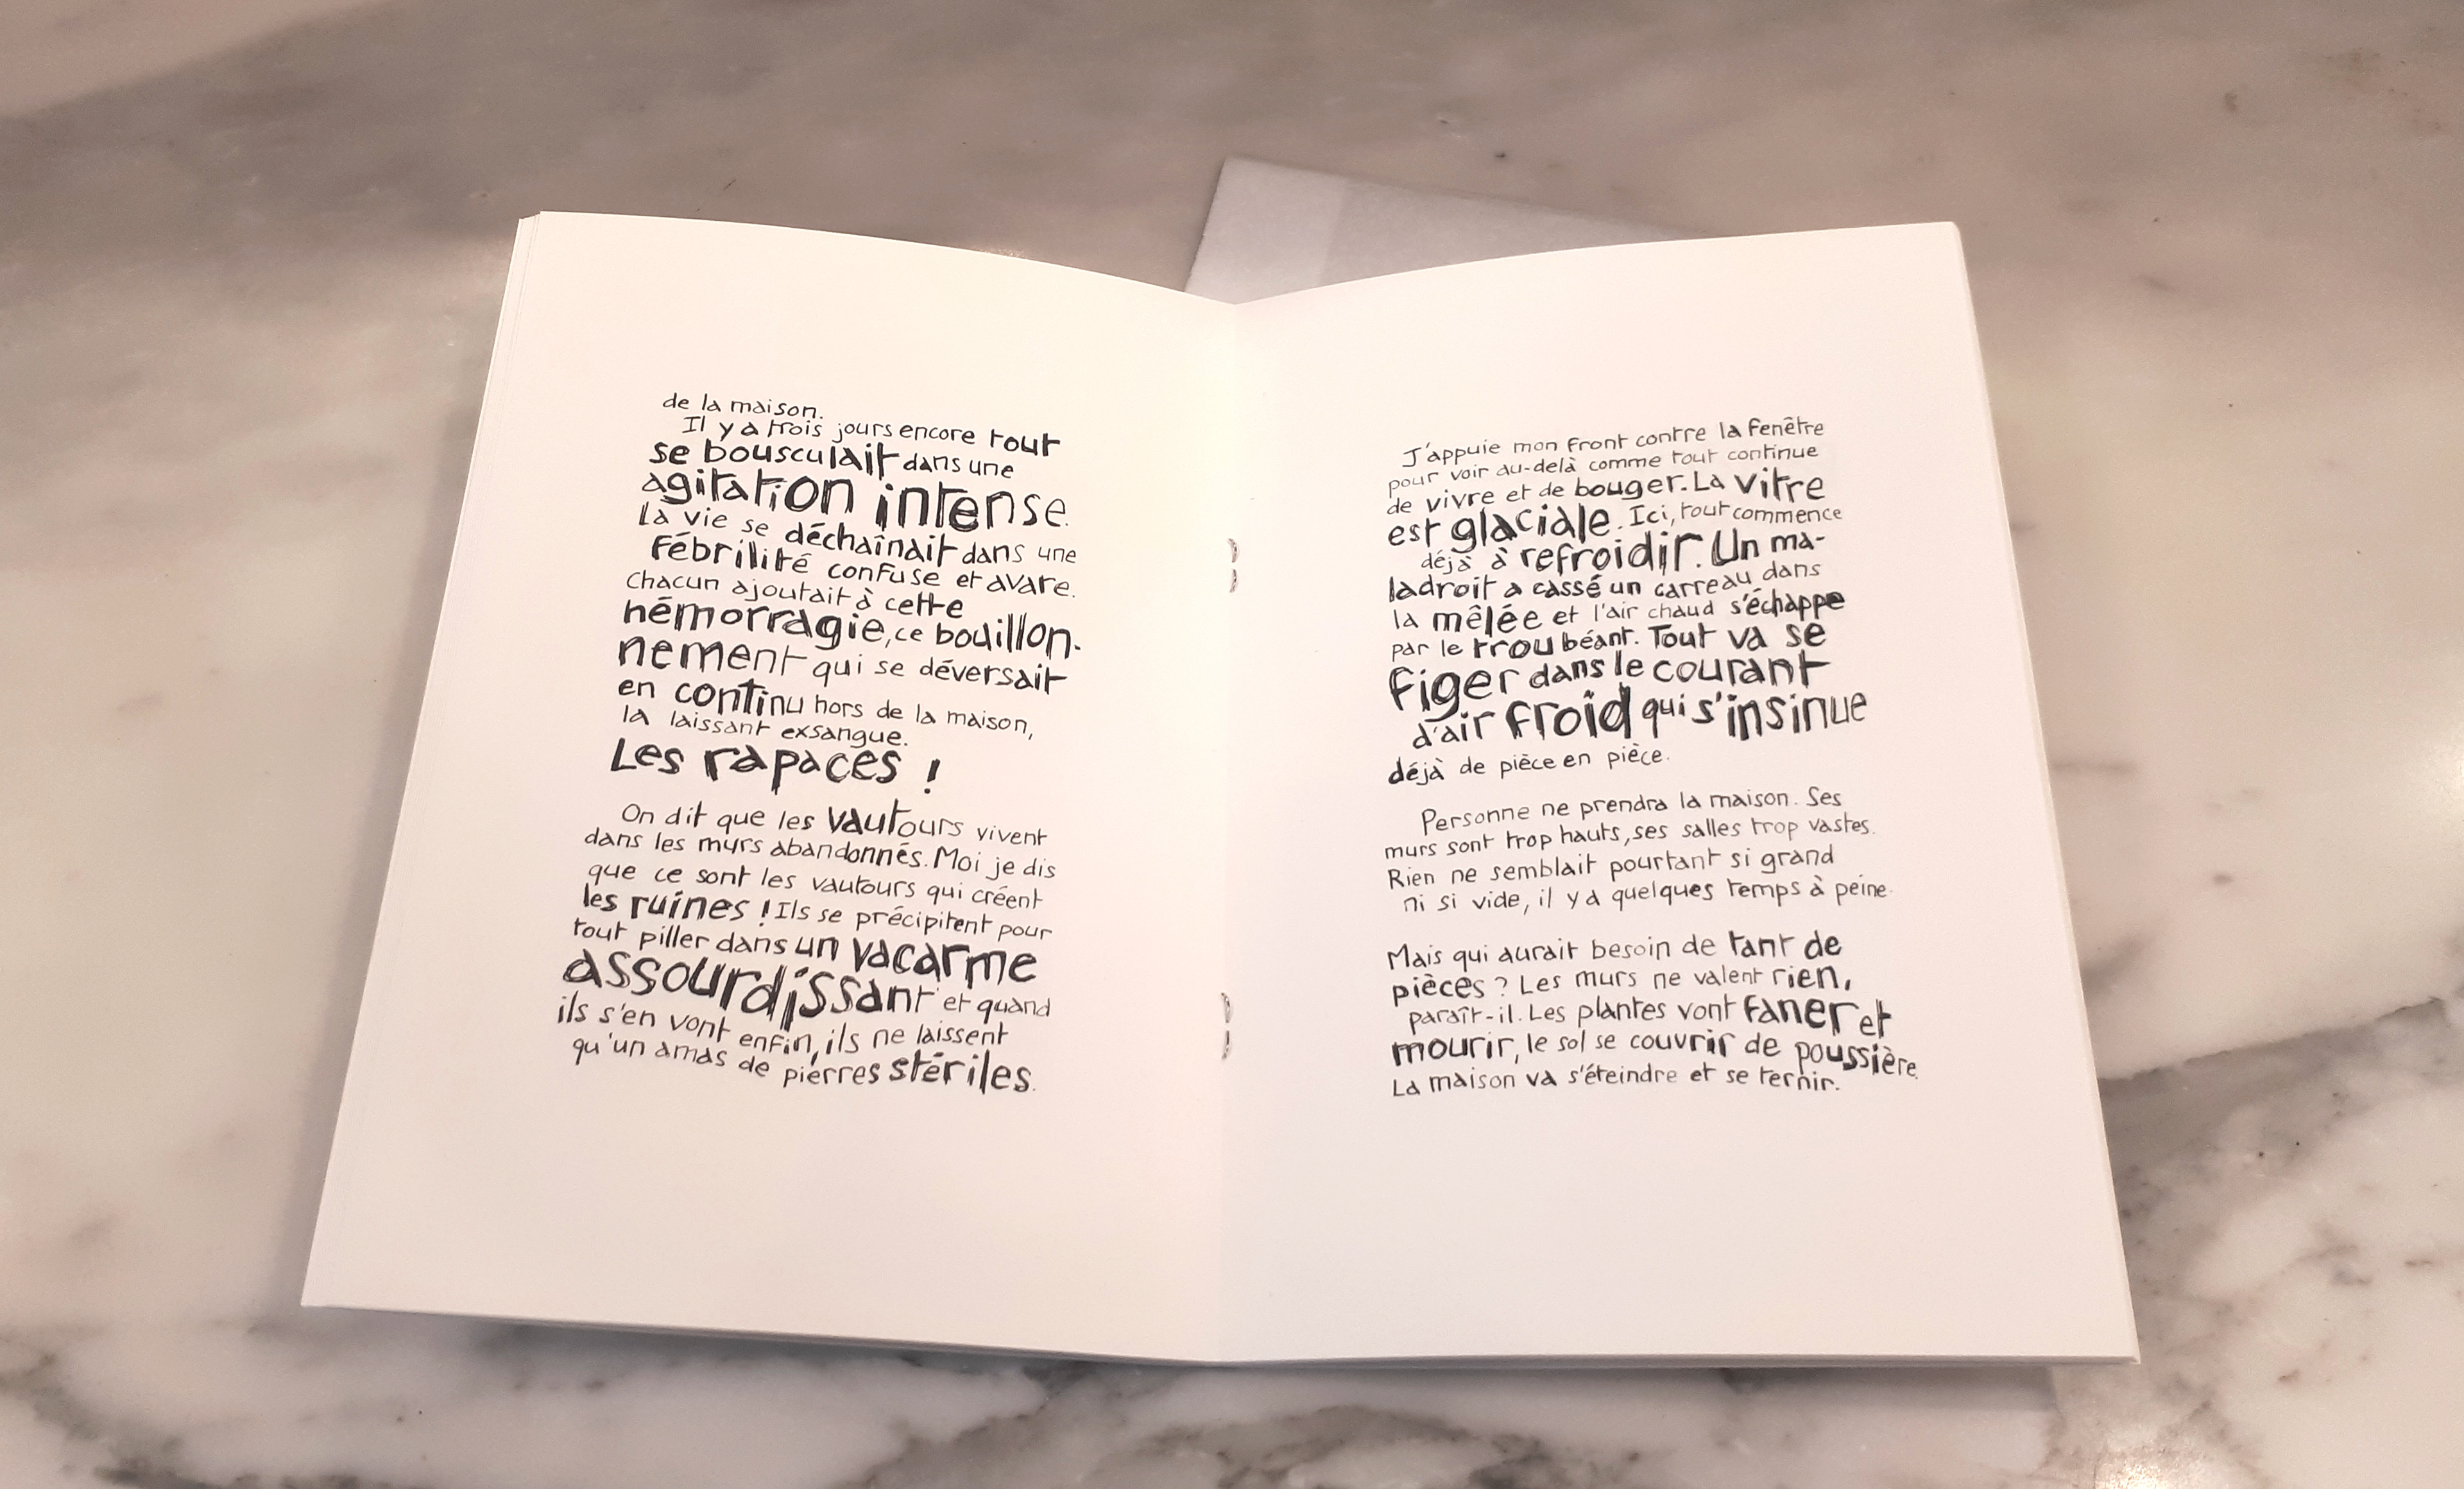 de la maison.
Il y a trois jours encore tout
se bousculait dans une
agitation intense.
la vie se déchaînait dans une
fébrilité confuse et avare.
chacun ajoutait à cette
hémorragie, ce bouillon-
nement qui se déversait
en continu hors de la maison,
la laissant exsangue.
Les rapaces !
On dit que les vautours vivent
dans les murs abandonnés. Moi je dis
que ce sont les vautours qui créent
les ruines ! Ils se précipitent pour
tout piller dans un vacarme
assourdissant et quand
ils s'en vont enfin, ils ne laissent
qu'un amas de pierres stériles.
J'appuie mon front contre la fenêtre
pour voir au-delà comme tout continue
de vivre et de bouger. La vitre
est glaciale. Ici, tout commence
déjà à refroidir. Un ma-
ladroit a cassé un carreau dans
la mêlée et l'air chaud s'échappe
par le trou béant. Tout va se
figer dans le courant
d'air froid qui s'insinue
déjà de pièce en pièce.
Personne ne prendra la maison. Ses
murs sont trop hauts, ses salles trop vastes.
Rien ne semblait pourtant si grand
ni si vide, il y a quelques temps à peine.
Mais qui aurait besoin de tant de
pièces ? Les murs ne valent rien,
paraît-il. Les plantes vont faner et
mourir, le sol se couvrir de poussière.
La maison va s'éteindre et se ternir.